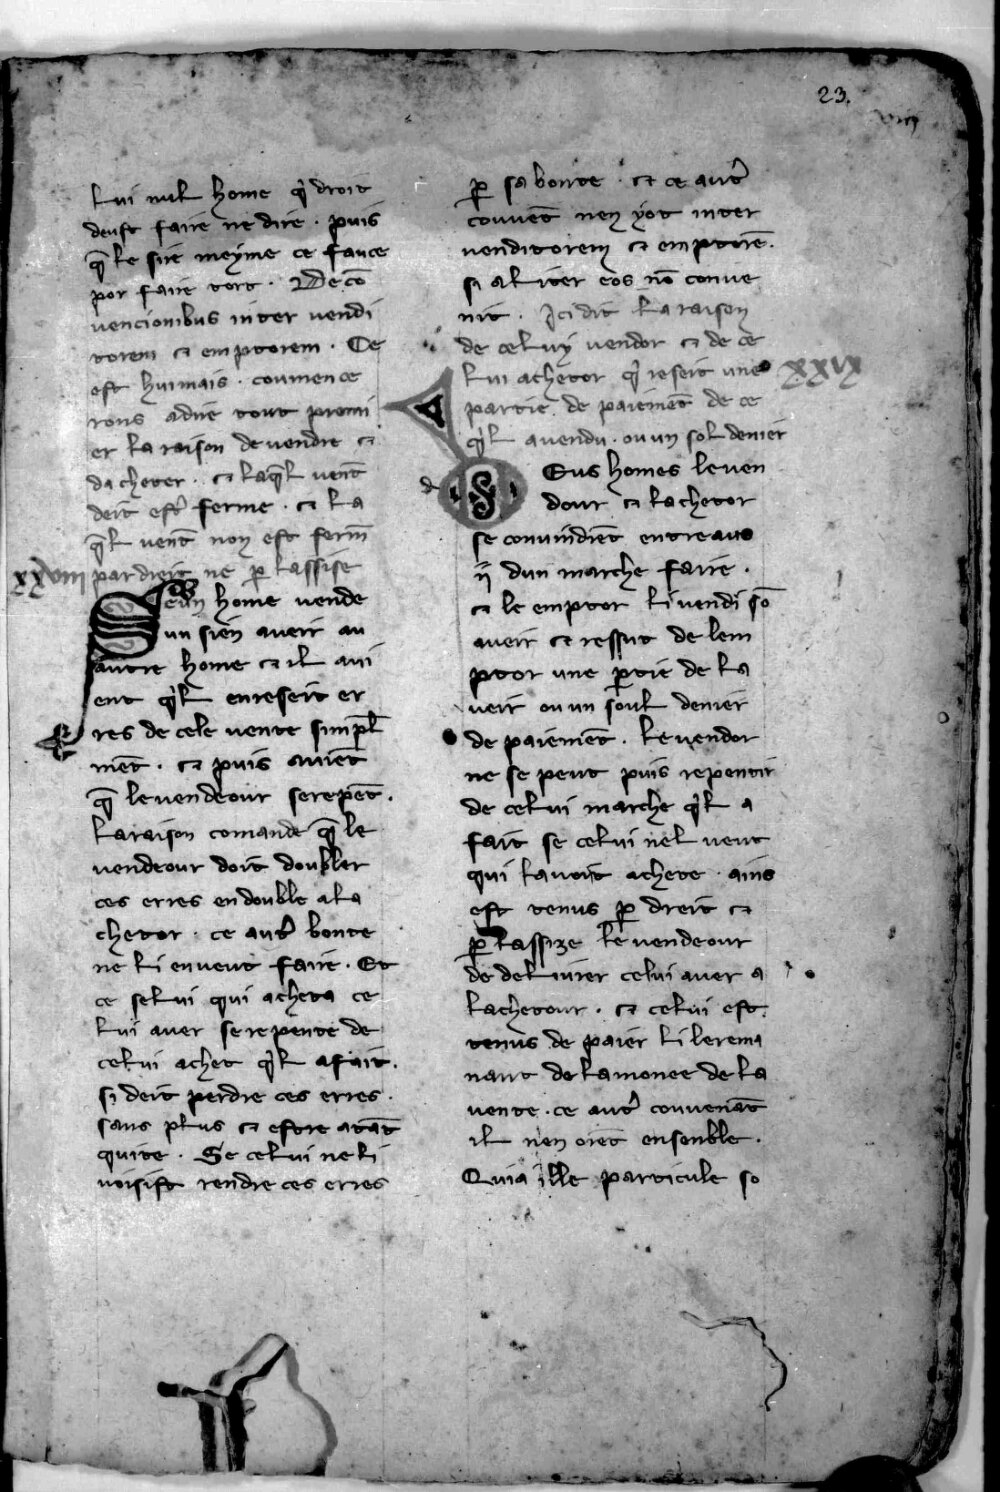 23.
lui nul home q̓ droit
deust faire ne dire · puis
q̄ le sire meyme ce fauce
por faire tort · De cō
vencionibus inter vendi
torem et emptorem · Ce
est huimais · coumence
rons a dire tout premi
er la raison de vendre et
dacheter · et laq̄l vent̄
deit estʼ ferme · et la
q̄l vent̄ non est ferm̄
xxviii par dreit ne p̱ lassise
Se un home vende
un sien aveir au
autre home et il avi
ent q̓l en reseit er
res de cele vente simpl̄
ment̄ · et puis avient̄
q̄ le vendeour se repent̄ ·
la raison comande q̄ le
vendeour doit doubler
ces erres en double a la
chetor · ce autʼ bonte
ne li en veut faire · Et
ce selui qui acheta ce
lui aver se repente de
celui achet q̓l a fait ·
si deit perdre ces erres ·
sans plus et estre atāt
quite · Se celui ne li
voisist rendre ces erres
p̱ sa bonte · et ce autʼ
convent̄ nen yot inter
venditorem et emptorē ·
si aliter eos nō conve
nit · Ici dit la raison
de celuy vendor et de ce
lui achetor q̓ reseit une xxix
partie de paiemēt de ce
q̓l a vendu · ou un sol denier
d
Sus homes le ven
dour et lachetor
se convindiēt entreaus
ii dun marche faire ·
et le emptor li vendi sō
aveir et ressut de lem
ptor une p̱tie de la
veir ou un soul denier
de paiemēt · le vendor
ne se peut puis repentir
de celui marche q̓l a
fait se celui nel veut
qui lavoit achete · ains
est tenus p̱ dreit et
p̱ lassize le vendeour
de delivrer celui aver a
lachetour · et celui est
tenus de paier li le rema
nant de la monee de la
vente · ce autʼ convenāt
il nen oiēt ensenble ·
Quia ille particule so